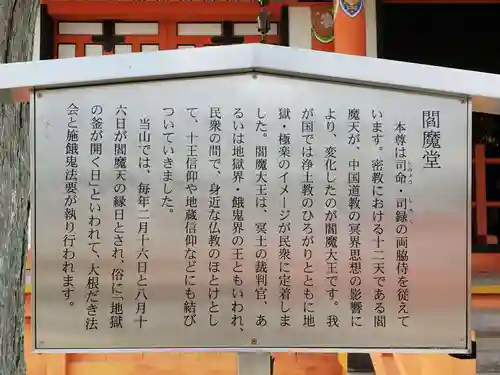 閻魔堂
本尊は司命・司録の両脇侍を従えて
しみょう しろく
います。密教における十二天である閻
魔天が、中国道教の冥界思想の影響に
より、変化したのが閻魔大王です。我
が国では浄土教のひろがりとともに地
獄・極楽のイメージが民衆に定着しま
した。閻魔大王は、冥土の裁判官、あ
るいは地獄界・餓鬼界の王ともいわれ、
民衆の間で、身近な仏教のほとけとし
て、十王信仰や地蔵信仰などにも結び
ついていきました。
当山では、毎年二月十六日と八月十
六日が閻魔天の縁日とされ、俗に「地獄
の釜が開く日」といわれて、大根だき法
会と施餓鬼法要が執り行われます。